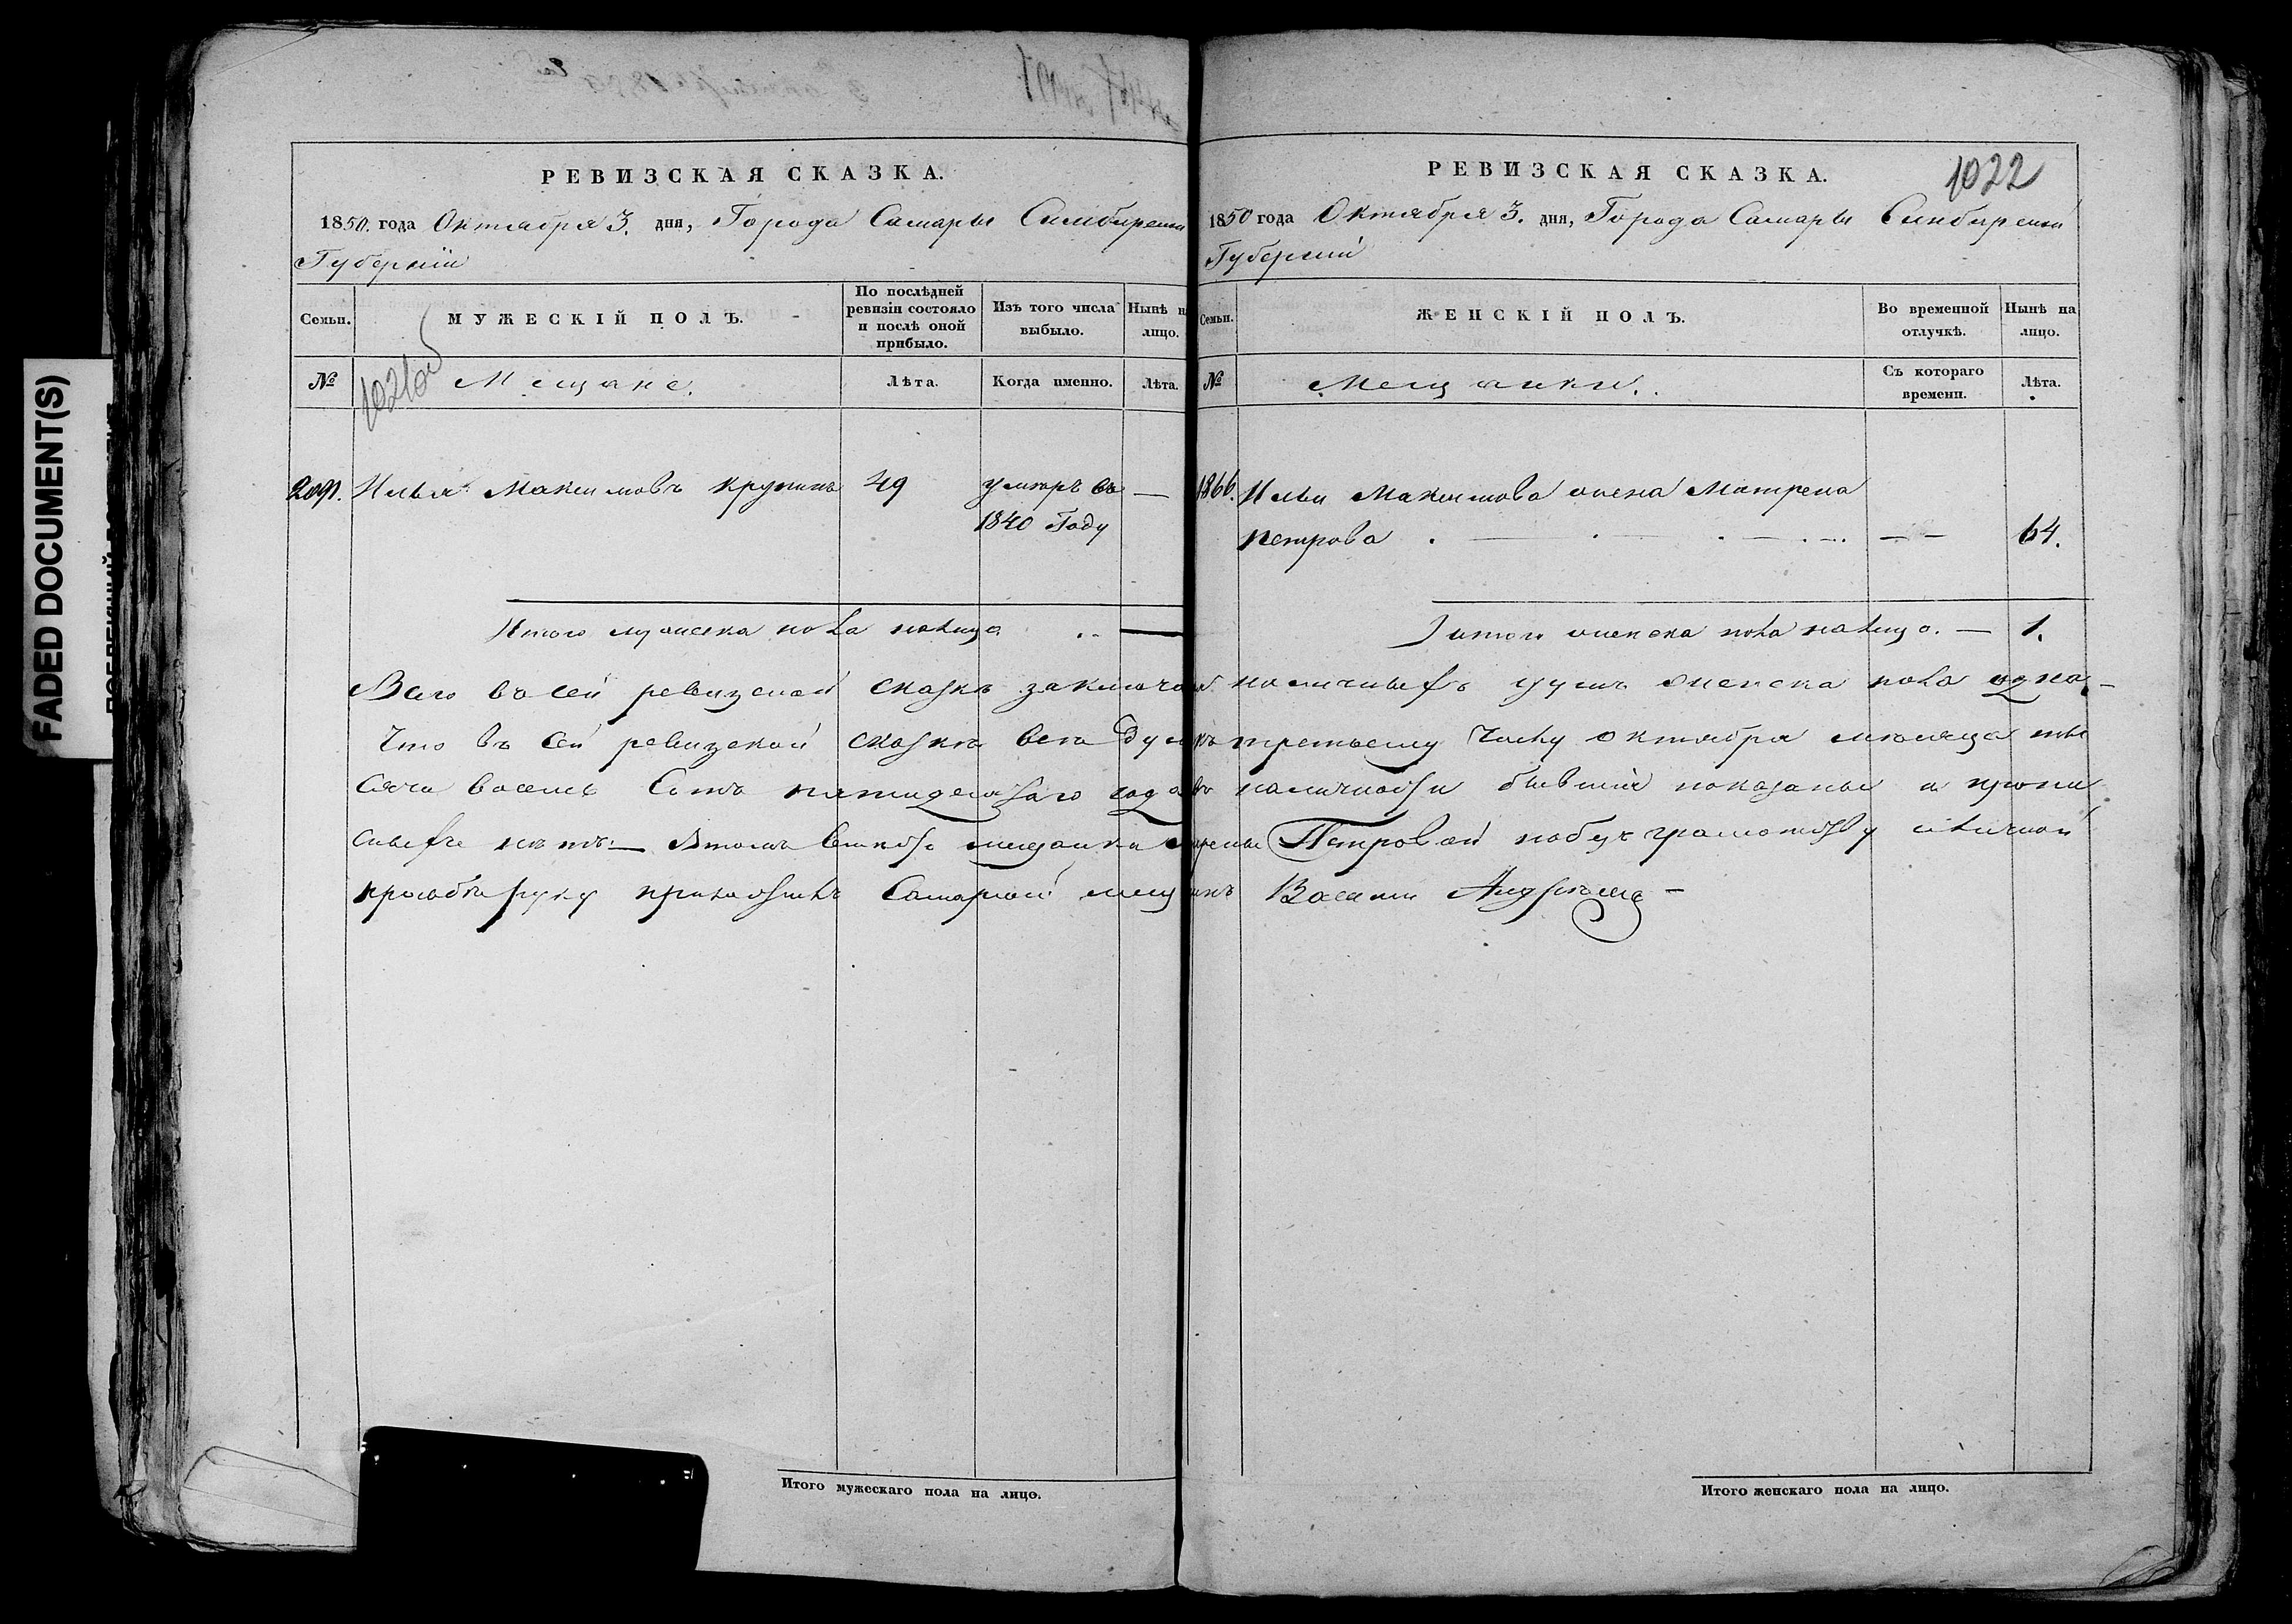 FADED DOCUMENT(S)
РЕВИЗСКАЯ СКАЗКА.
1850. года Октября 3. дня, Города Самары Симбирской
Губерніи
Семьи.
МУЖЕСКІЙ ПОЛЪ.
По послѣдней
ревизіи состояло
и послѣ оной
прибыло.
Изъ того числа
выбыло.
Нынѣ на
лицо.
№
1021об
Мещане.
Лѣта.
Когда именно.
Лѣта.
2091. Илья Максимовъ Крупинъ 49 умеръ въ —
1840 Году
Итого мужеска пола налицо . . —
РЕВИЗСКАЯ СКАЗКА.
1022
1850 года Октября 3. дня, Города Самары Синбирской
Губерніи
Семьи.
ЖЕНСКІЙ ПОЛЪ.
Во временной
отлучкѣ.
Нынѣ на
лицо.
№
Мещанки.
Съ котораго
времени.
Лѣта.
1866. Ильи Максимова жена Матрена
Петрова — — 64.
Итого женска пола налицо. — 1.
Всего въ сей ревизской сказкѣ заключается наличныхъ душъ женска пола одна —
Что въ сей ревизской сказкѣ все душъ къ третьему числу октября месяца ты
сяча восемь Сотъ пятидесятаго года въ наличности бывшія показаны и пропи
сныхъ нѣтъ. — Въ томъ вместо мещанки Матрены Петровой по безграмотству и личной
прозьбе руку приложилъ Самарской мещанинъ Василій
Итого мужескаго пола на лицо.
Итого женскаго пола на лицо.